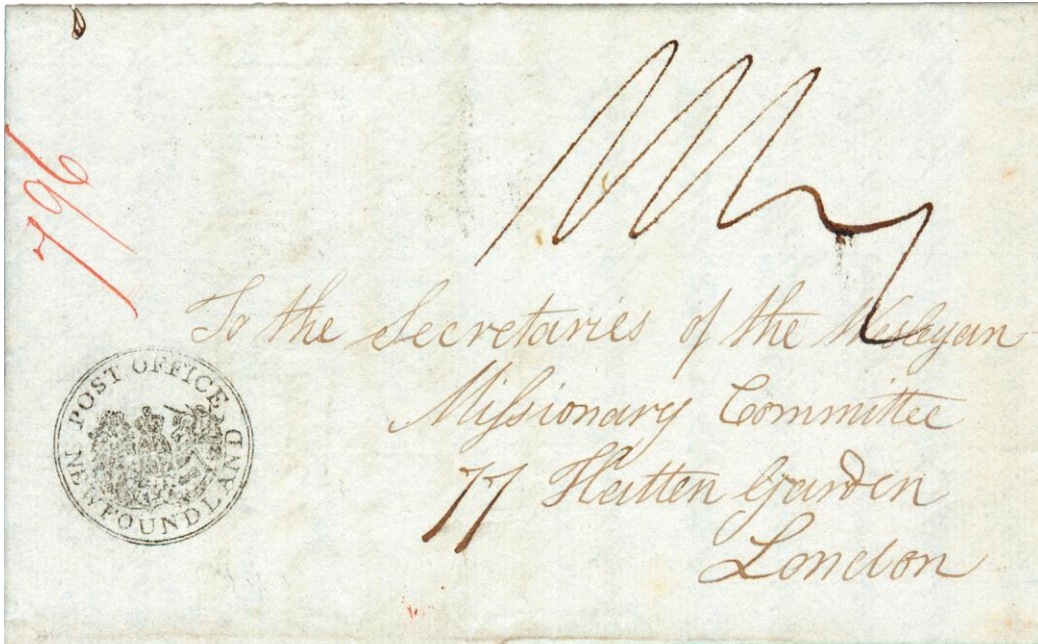 796
To the Secretaries of the Wesleyan
Missionary Committee
77 Hatten Garden
London
POST OFFICE
NEWFOUNDLAND